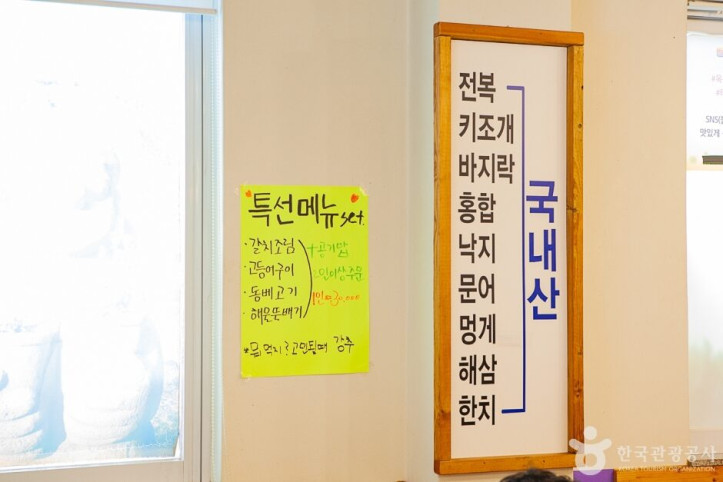 특선메뉴 set.
· 갈치조림
· 고등어구이
· 돔베고기
· 해물뚝배기
+공기밥
2인이상주문
1인 ₩30,000
*뭐 먹지? 고민될때 강추
전복
키조개
바지락
홍합
낙지
문어
멍게
해삼
한치
국내산
SNS
맛있게
한국관광공사
KOREA TOURISM ORGANIZATION